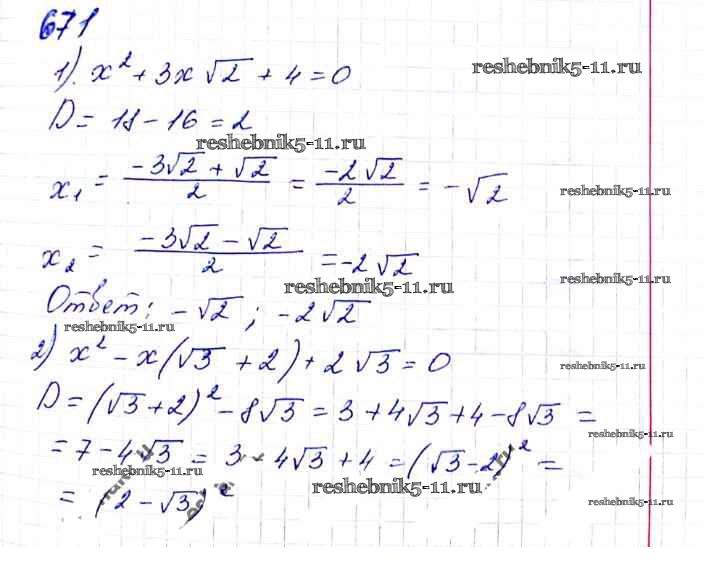 671
1) x² + 3x√2 + 4 = 0
reshebnik5-11.ru
D = 18 - 16 = 2
reshebnik5-11.ru
x₁ = (-3√2 + √2)/2 = (-2√2)/2 = -√2
reshebnik5-11.ru
x₂ = (-3√2 - √2)/2 = -2√2
reshebnik5-11.ru
reshebnik5-11.ru
Ответ: -√2 ; -2√2
reshebnik5-11.ru
2) x² - x(√3 + 2) + 2√3 = 0
reshebnik5-11.ru
D = (√3 + 2)² - 8√3 = 3 + 4√3 + 4 - 8√3 =
reshebnik5-11.ru
= 7 - 4√3 = 3 - 4√3 + 4 = (√3 - 2)² =
reshebnik5-11.ru
reshebnik5-11.ru
= (2 - √3)²
reshebnik5-11.ru